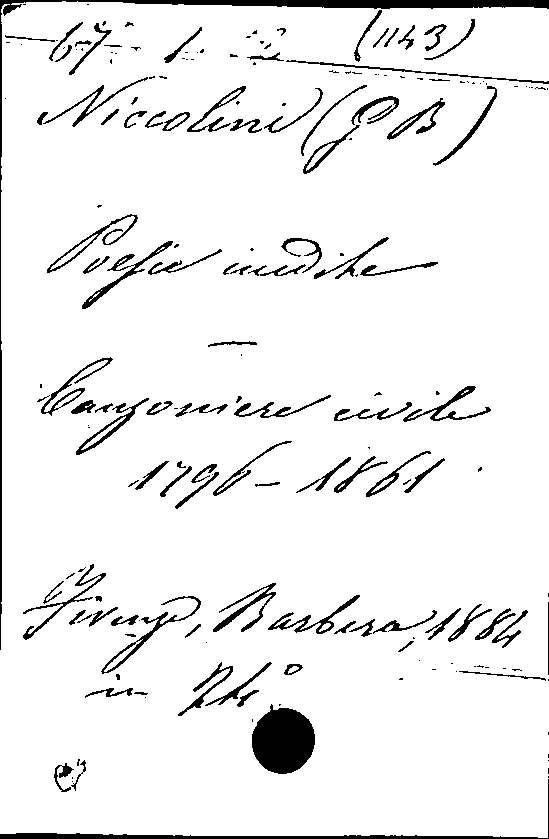 67 1 (1143)
Niccolini (G B)
Poesie inedite
—
Canzoniere civile
1796 – 1861.
Firenze, Barbera, 1884
in 24°